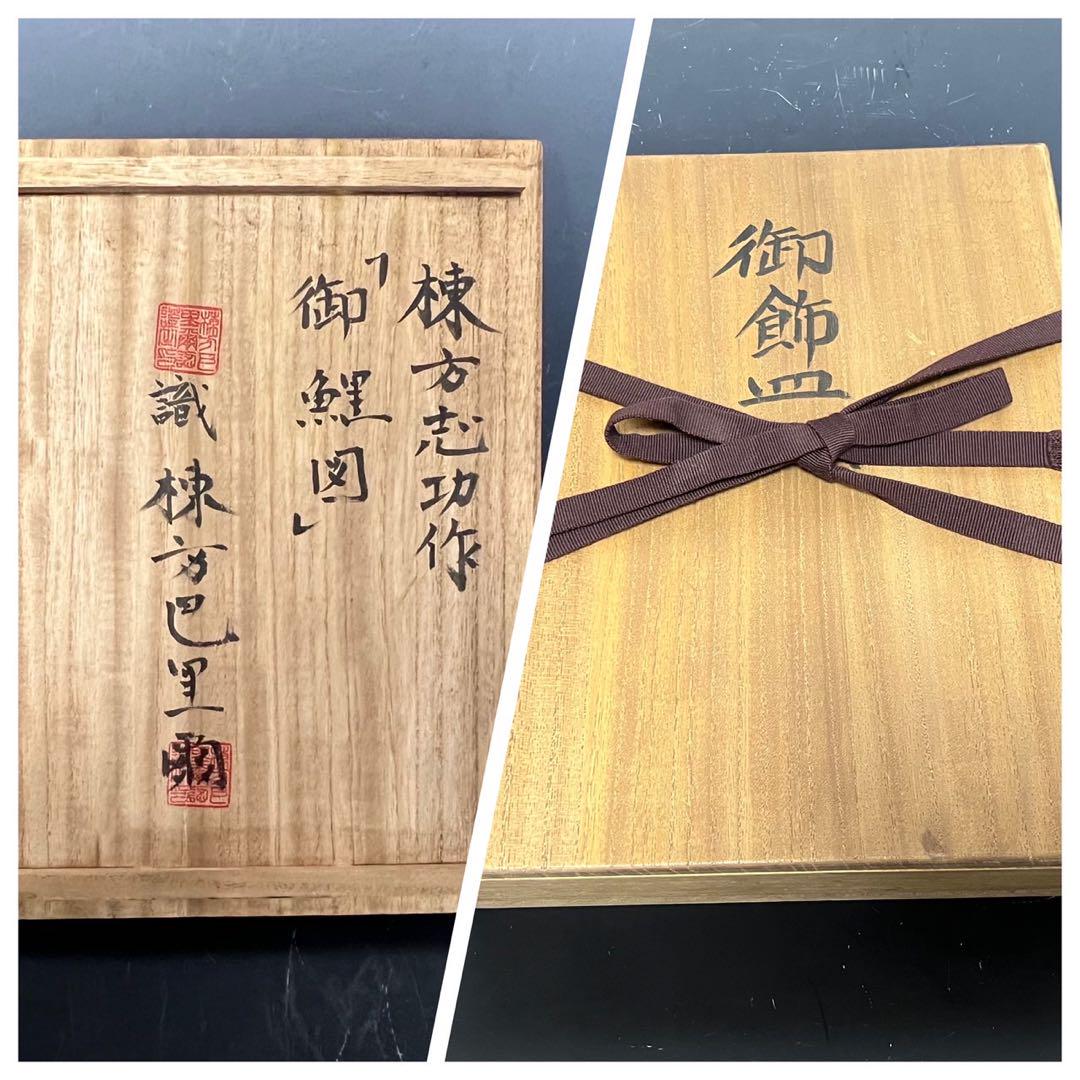 棟方志功作
「御鯉図」
識 棟方巴里爾
御飾皿